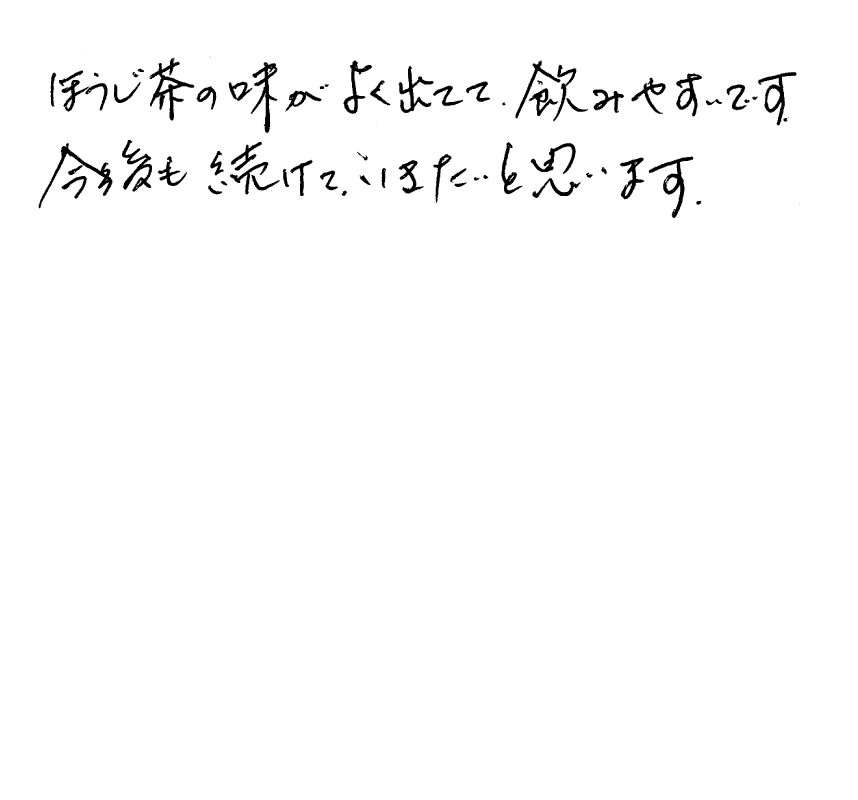 ほうじ茶の味がよく出てて、飲みやすいです。
今後も続けて、いきたいと思います。